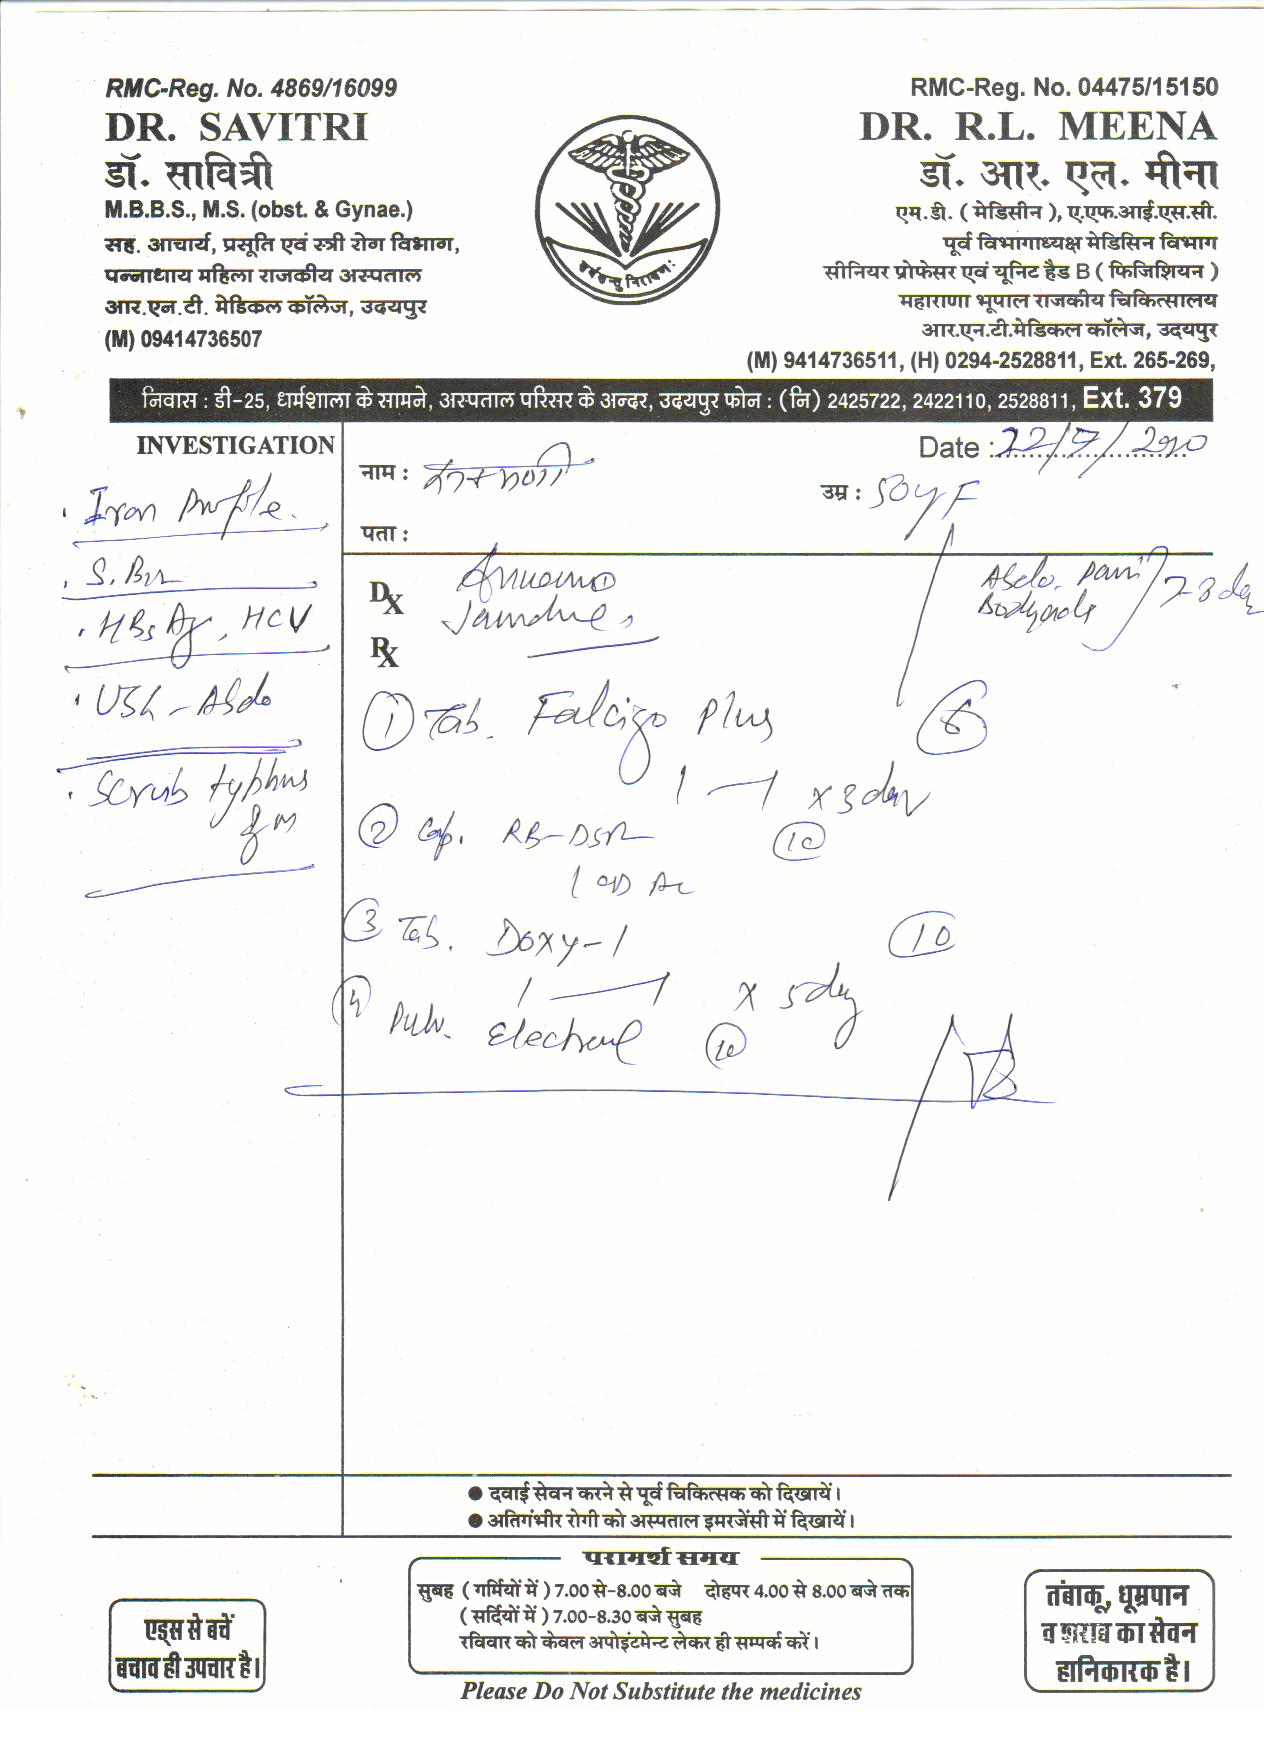 RMC-Reg. No. 4869/16099
DR. SAVITRI
डॉ. सावित्री
M.B.B.S., M.S. (obst. & Gynae.)
सह. आचार्य, प्रसूति एवं स्त्री रोग विभाग,
पन्नाधाय महिला राजकीय अस्पताल
आर.एन.टी. मेडिकल कॉलेज, उदयपुर
(M) 09414736507
RMC-Reg. No. 04475/15150
DR. R.L. MEENA
डॉ. आर. एल. मीना
एम.डी. ( मेडिसीन ), ए.एफ.आई.एस.सी.
पूर्व विभागाध्यक्ष मेडिसिन विभाग
सीनियर प्रोफेसर एवं यूनिट हैड B ( फिजिशियन )
महाराणा भूपाल राजकीय चिकित्सालय
आर.एन.टी.मेडिकल कॉलेज, उदयपुर
(M) 9414736511, (H) 0294-2528811, Ext. 265-269,
निवास : डी-25, धर्मशाला के सामने, अस्पताल परिसर के अन्दर, उदयपुर फोन : (नि) 2425722, 2422110, 2528811, Ext. 379
INVESTIGATION
Iron Profile.
HBs Ag, HCV
Scrub typhus
Date :
नाम :
उम्र : 50y F
पता :
DX
Abdo. pain
RX
① Tab. Falcigo Plus ⑥
1 — 1 x 3 day
② Cap. RB-DSR ⑩
1 OD AC
③ Tab. Doxy-1 ⑩
1 — 1 x 5 day
④ Pulv. Electral ⑩
● दवाई सेवन करने से पूर्व चिकित्सक को दिखायें।
● अतिगंभीर रोगी को अस्पताल इमरजेंसी में दिखायें।
एड्स से बचें
बचाव ही उपचार है।
परामर्श समय
सुबह ( गर्मियों में ) 7.00 से-8.00 बजे दोहपर 4.00 से 8.00 बजे तक
( सर्दियों में ) 7.00-8.30 बजे सुबह
रविवार को केवल अपोइंटमेन्ट लेकर ही सम्पर्क करें।
तंबाकू, धूम्रपान
व शराब का सेवन
हानिकारक है।
Please Do Not Substitute the medicines